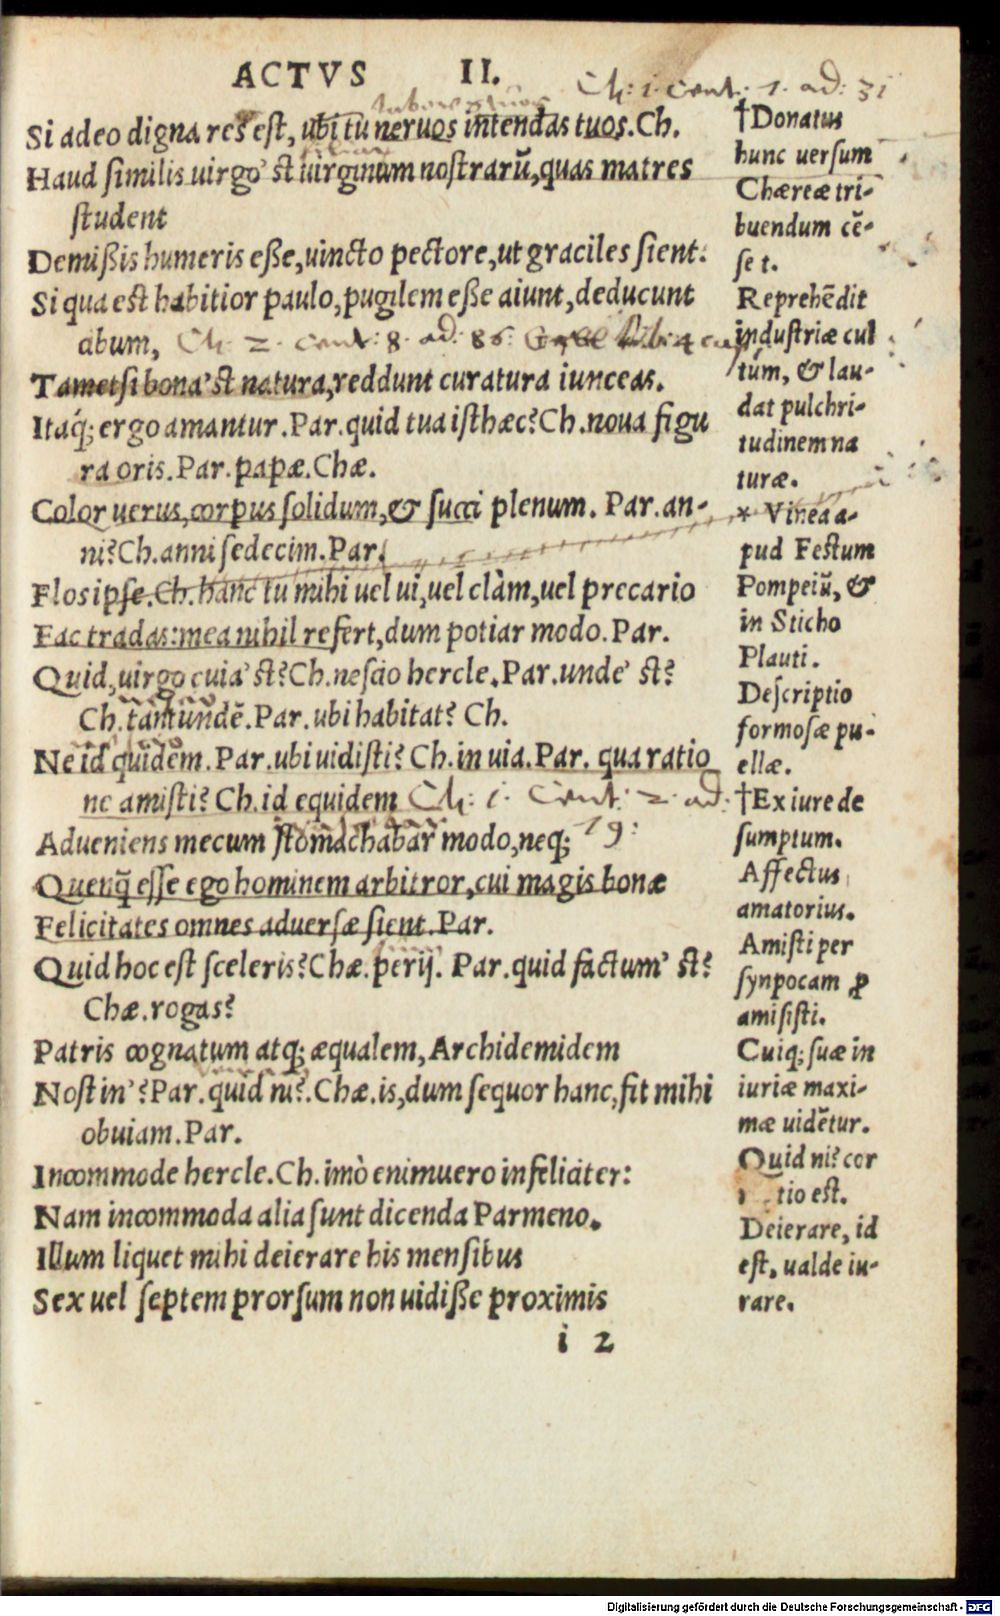 ACTVS II.
Ch: 1. cent. 1. ad: 31
Si adeo digna res est, ubi tu neruos intendas tuos. Ch.
Haud similis uirgo' st uirginum nostrarũ, quas matres
student
Demißis humeris eße, uincto pectore, ut graciles sient.
Si qua est habitior paulo, pugilem eße aiunt, deducunt
cibum,
Ch. 2. cent: 8. ad: 86.
Tametsi bona' st natura, reddunt curatura iunceas.
Itaq́; ergo amantur. Par. quid tua isthæc? Ch. noua figu
ra oris. Par. papæ. Chæ.
Color uerus, corpus solidum, & succi plenum. Par. an-
ni? Ch. anni sedecim. Par.
Flos ipse. Ch. hanc tu mihi uel ui, uel clàm, uel precario
Fac tradas: mea nihil refert, dum potiar modo. Par.
Quid, uirgo cuia' st? Ch. nescio hercle. Par. unde' st?
Ch. tantundẽ. Par. ubi habitat? Ch.
Ne id quidem. Par. ubi uidisti? Ch. in uia. Par. qua ratio
ne amisti? Ch. id equidem
Ch: 1. Cent: 2. ad:
19:
Adueniens mecum stomachabar modo, neq;
Quenq̃ esse ego hominem arbitror, cui magis bonæ
Felicitates omnes aduersæ sient. Par.
Quid hoc est sceleris? Chæ. perij. Par. quid factum' st?
Chæ. rogas?
Patris cognatum atq; æqualem, Archidemidem
Nostin'? Par. quid ni? Chæ. is, dum sequor hanc, fit mihi
obuiam. Par.
Incommode hercle. Ch. imò enimuero infeliciter:
Nam incommoda alia sunt dicenda Parmeno.
Illum liquet mihi deierare his mensibus
Sex uel septem prorsum non uidiße proximis
i 2
†Donatus
hunc uersum
Chæreæ tri-
buendum cẽ-
set.
Reprehẽdit
industriæ cul
tum, & lau-
dat pulchri-
tudinem na
turæ.
* Vinea a-
pud Festum
Pompeiũ, &
in Sticho
Plauti.
Descriptio
formosæ pu-
ellæ.
†Ex iure de
sumptum.
Affectus
amatorius.
Amisti per
synpocam ꝓ
amisisti.
Cuiq; suæ in
iuriæ maxi-
mæ uidẽtur.
Quid ni? cor
tio est.
Deierare, id
est, ualde iu-
rare.
Digitalisierung gefördert durch die Deutsche Forschungsgemeinschaft - DFG